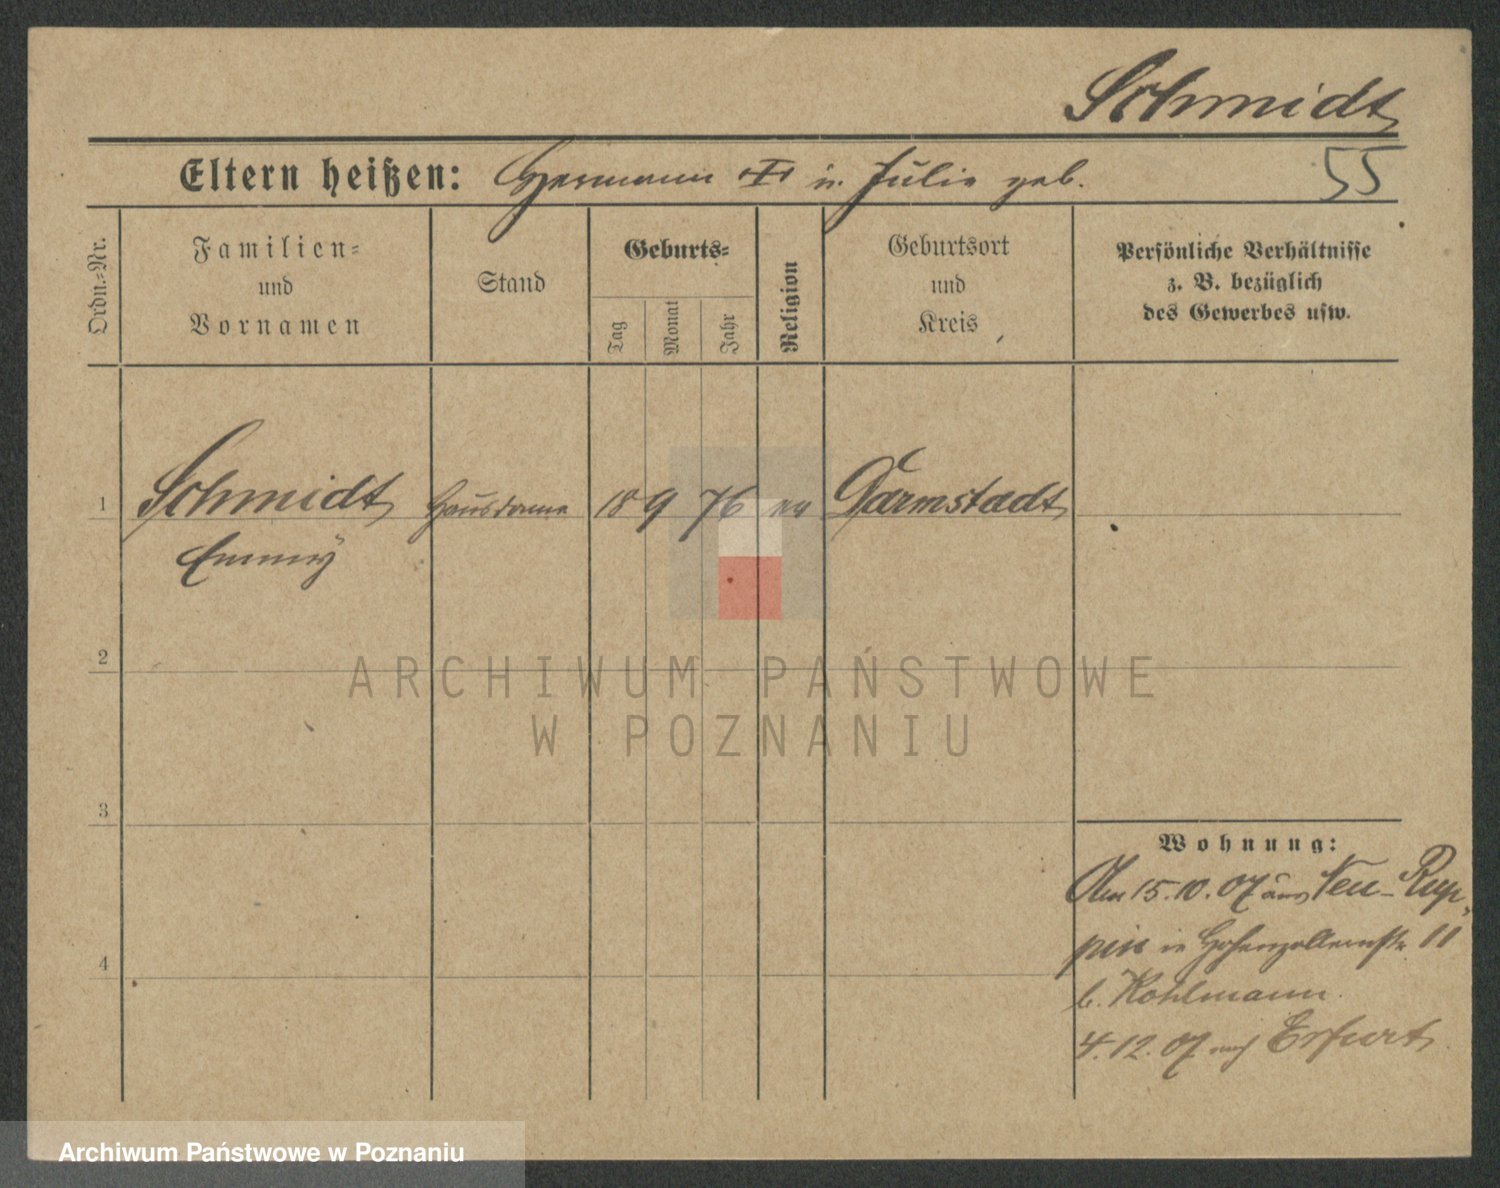 Schmidt
Eltern heißen: Hermann u. Julie geb.
55
Ordn.=Nr.
Familien=
und
Vornamen
Stand
Geburts=
Tag
Monat
Jahr
Religion
Geburtsort
und
Kreis
Persönliche Verhältnisse
z. B. bezüglich
des Gewerbes usw.
1 Schmidt Hausdame 18 9 76 ev Darmstadt
Emmy
2
ARCHIWUM PAŃSTWOWE
W POZNANIU
3
Wohnung:
Am 15.10.07 aus Neu-Rup-
pin in Hohenzollernstr. 11
b. Kohlmann.
4
4.12.07 nach Erfurt
Archiwum Państwowe w Poznaniu